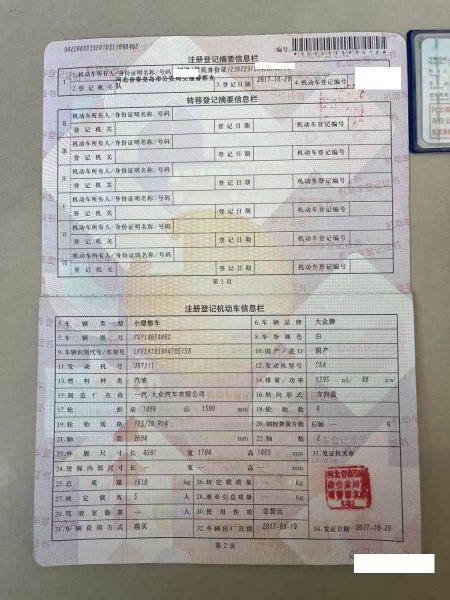 注册登记摘要信息栏
编号:
1.机动车所有人/身份证明名称/号码
2.登记机关
河北省秦皇岛市公安局交通警察支队
3.登记日期
2017-10-20
4.机动车登记编号
转移登记摘要信息栏
Ⅱ
机动车所有人/身份证明名称/号码
登记机关
登记日期
机动车登记编号
Ⅲ
机动车所有人/身份证明名称/号码
登记机关
登记日期
机动车登记编号
Ⅳ
机动车所有人/身份证明名称/号码
登记机关
登记日期
机动车登记编号
Ⅴ
机动车所有人/身份证明名称/号码
登记机关
登记日期
机动车登记编号
Ⅵ
机动车所有人/身份证明名称/号码
登记机关
登记日期
机动车登记编号
Ⅶ
机动车所有人/身份证明名称/号码
登记机关
登记日期
机动车登记编号
第1页
注册登记机动车信息栏
5.车辆类型 小型轿车 6.车辆品牌 大众牌
7.车辆型号 8.车身颜色 白
9.车辆识别代号/车架号 10.国产/进口 国产
11.发动机号 12.发动机型号 CKA
13.燃料种类 汽油 14.排量/功率 1395 mL/ 66 kw
15.制造厂名称 一汽-大众汽车有限公司 16.转向形式 方向盘
17.轮距 前 1460 后 1500 mm 18.轮胎数 4
19.轮胎规格 175/70 R14 20.钢板弹簧片数 后轴 片
21.轴距 2604 mm 22.轴数 2
23.外廓尺寸 长 4501 宽 1704 高 1465 mm 33.发证机关章
24.货厢内部尺寸 长 宽 高 mm
25.总质量 1610 kg 26.核定载质量 kg
27.核定载客 5 人 28.准牵引总质量 kg
29.驾驶室载客 人 30.使用性质 非营运
31.车辆获得方式 购买 32.车辆出厂日期 2017-09-10 34.发证日期 2017-10-20
第2页